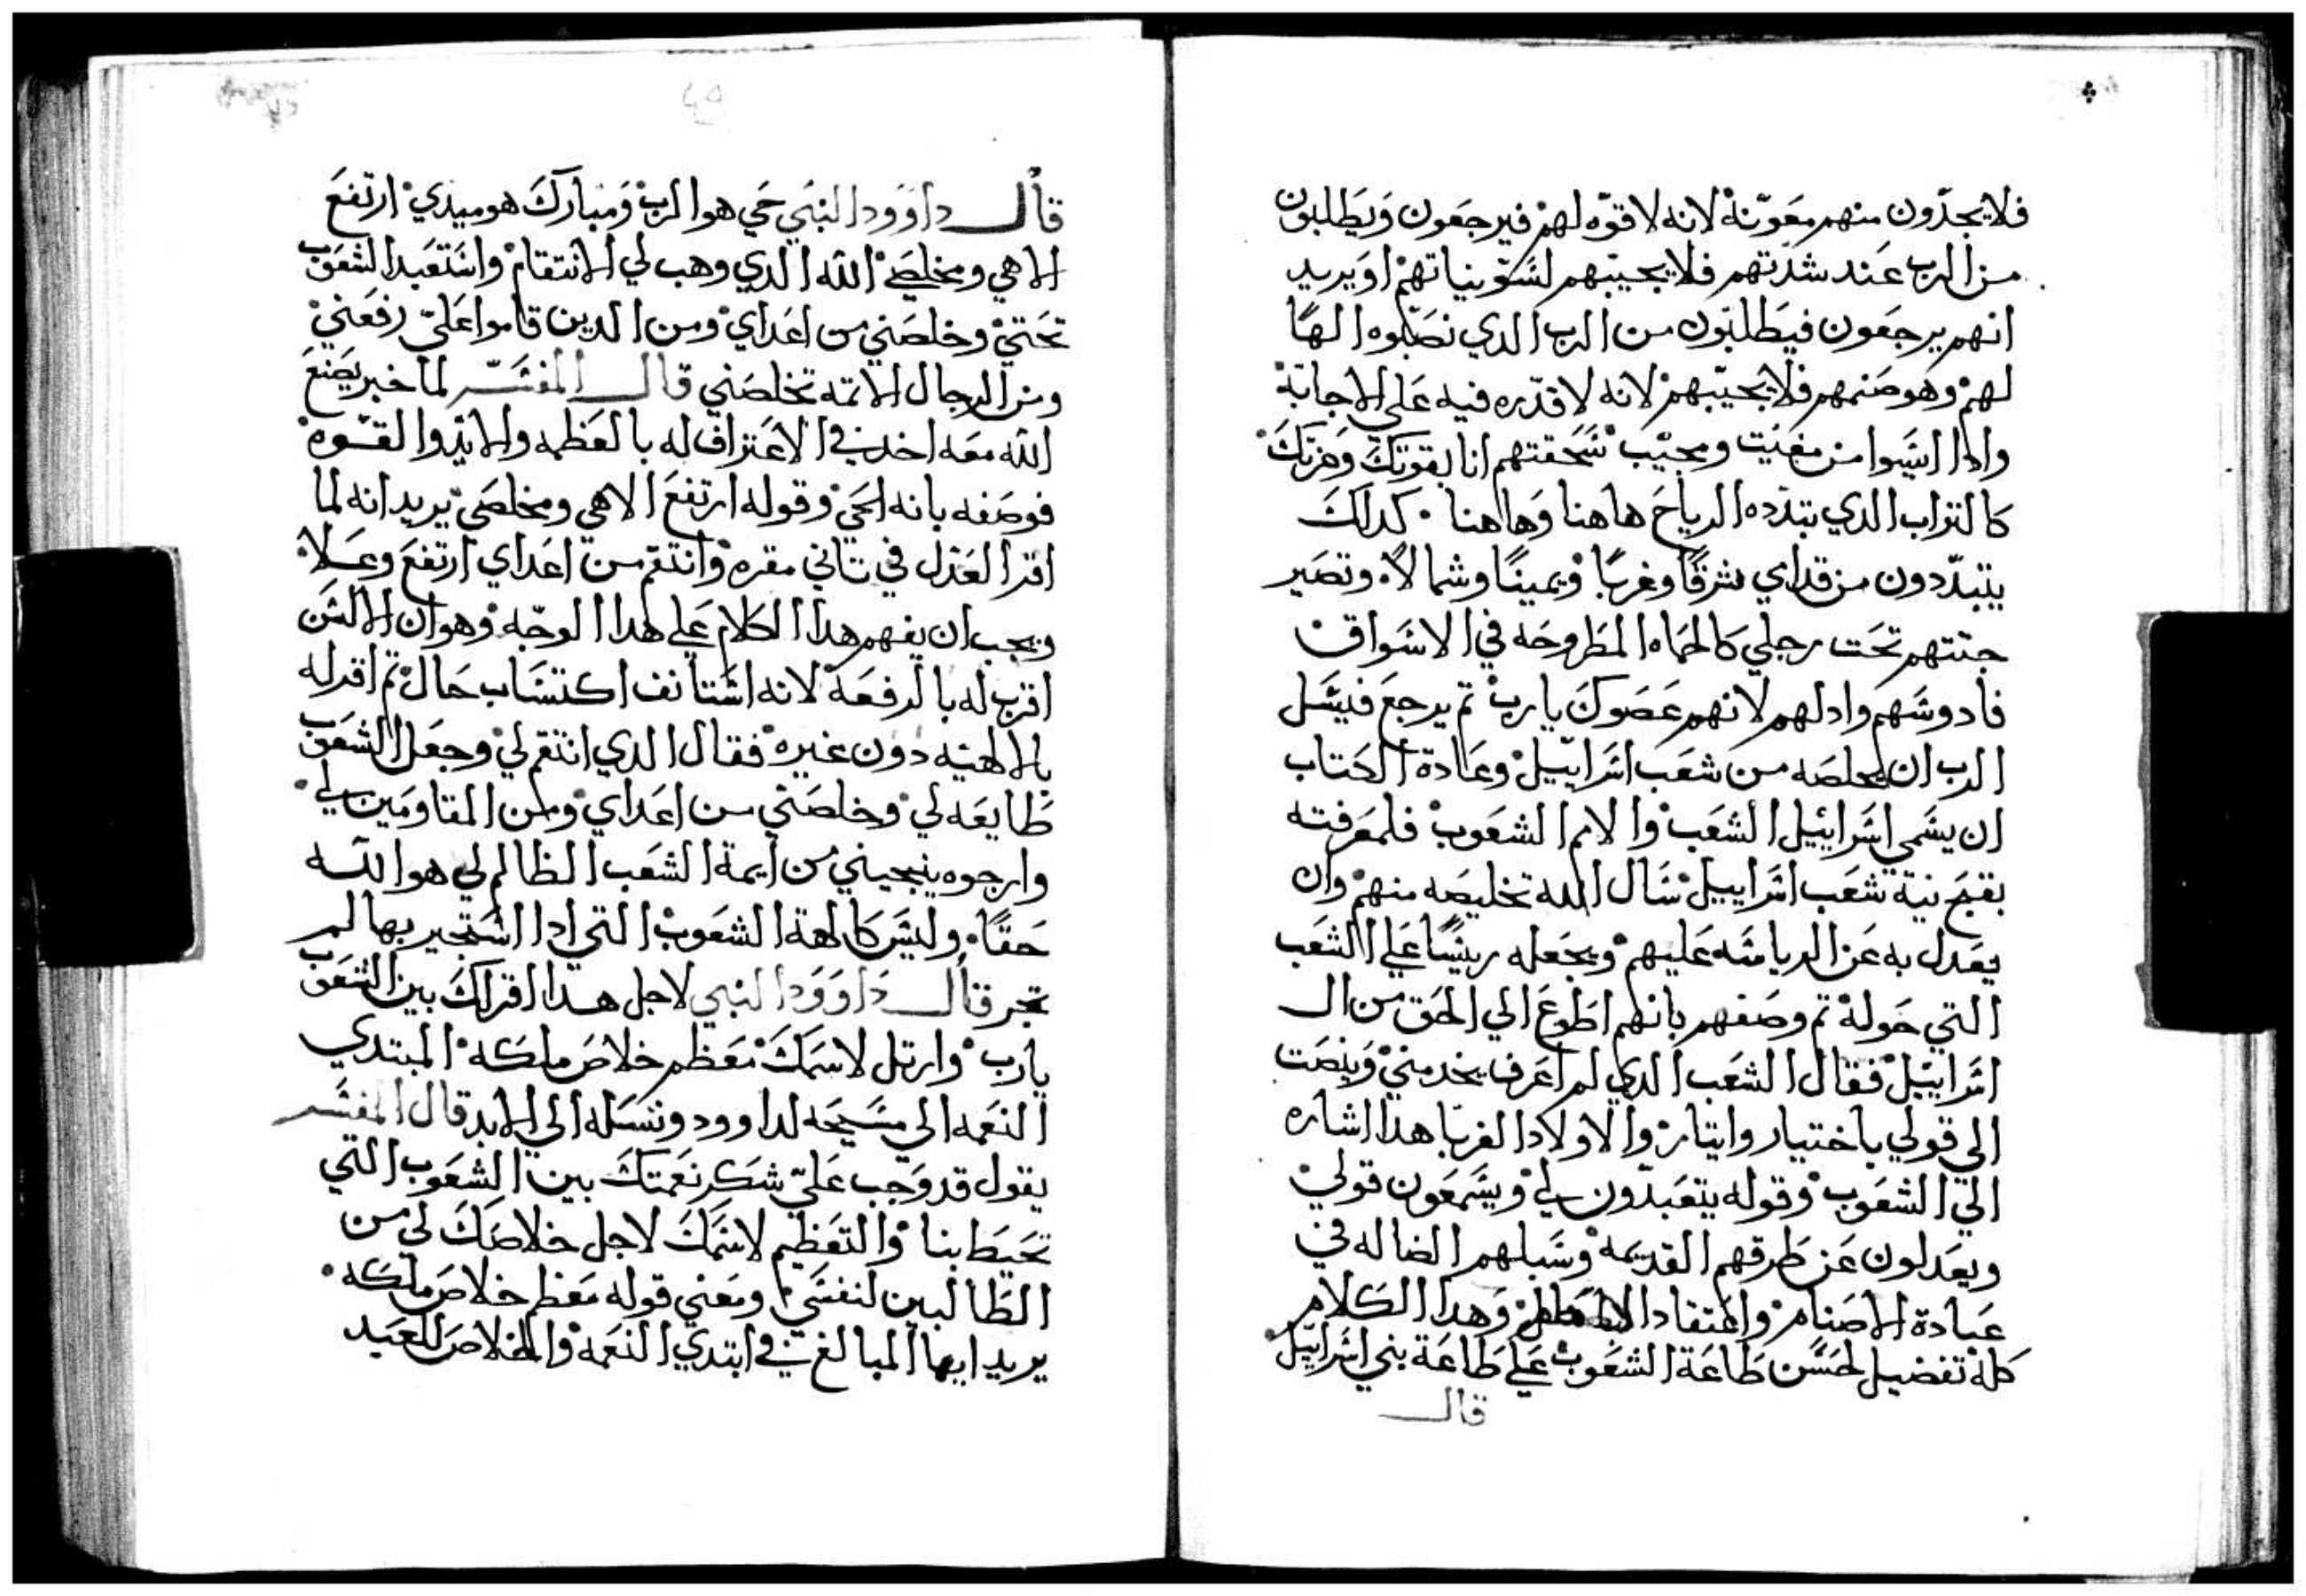 فلا يجدون منهم معونة لانه لا قوه لهم فيرجعون ويطلبون
من الرب عند شدتهم فلا يجيبهم لسو نياتهم او يريد
انهم يرجعون فيطلبون من الرب الدي نصبوه الها
لهم وهو صنمهم فلا يجيبهم لانه لا قدره فيه على الاجابة
وادا ايسوا من مغيت ومجيب سحقتهم انا بقوتك وعزتك
كالتراب الدي تبدده الرياح هاهنا وهاهنا كدلك
يتبددون من قدامي شرقا وغربا ويمينا وشمالا وتصير
جتتهم تحت رجلي كالحماه المطروحه في الاسواق
فادوسهم وادلهم لانهم عصوك يا رب تم يرجع فيسل
الرب ان يخلصه من شعب اسراييل وعادة الكتاب
ان يسمي اسراييل الشعب والامم الشعوب فلمعرفته
بقبح نية شعب اسراييل سال الله تخليصه منهم وان
يعدل به عن الرياسه عليهم ويجعله ريسا علي الشعب
التي حوله تم وصفهم بانهم اطوع الي الحق من ال
اسراييل فقال الشعب الدي لم اعرف يخدمني وينصت
الي قولي باختيار وايتار والاولاد الغربا هدا اشاره
الي الشعوب وقوله يتعبدون لي ويسمعون قولي
ويعدلون عن طرقهم القديمه وسبلهم الضاله في
عبادة الاصنام واعتقاد الاباطيل وهدا الكلام
كله تفضيل لحسن طاعة الشعوب علي طاعة بني اسراييل
قال
قال داوود النبي حي هو الرب ومبارك هو ميدي ارتفع
الاهي ومخلصي الله الدي وهب لي الانتقام واستعبد الشعوب
تحتي وخلصني من اعداي ومن الدين قاموا علي رفعني
ومن الرجال الاتمه تخلصني قال المفسر لما خبر بصنع
الله معه اخد في الاعتراف له بالعظمه والايد والقوه
فوصفه بانه الحي وقوله ارتفع الاهي ومخلصي يريد انه لما
اقر العدل في تاني مقره وانتقم من اعداي ارتفع وعلا
ويجب ان يفهم هدا الكلام علي هدا الوجه وهو ان الالسن
اقرب له بالرفعه لانه استانف اكتساب حال تم اقر له
بالالهيه دون غيره فقال الدي انتقم لي وجعل الشعوب
طايعه لي وخلصني من اعداي ومن المقاومين لي
وارجوه ينجيني من ايمة الشعب الظالم لي هو الله
حقا وليس كالهة الشعوب التي ادا استجير بها لم
تجر قال داوود النبي لاجل هدا اقر لك بين الشعوب
يا رب وارتل لاسمك معظم خلاص ملكه المبتدي
النعمه الي مسيحه لداوود ونسله الي الابد قال المفسر
يقول قد وجب علي شكر نعمتك بين الشعوب التي
تحيط بنا والتعظيم لاسمك لاجل خلاصك لي من
الطالبين لنفسي ومعني قوله معظم خلاص ملكه
يريد ايها المبالغ في ابتدي النعمه والخلاص للعبد